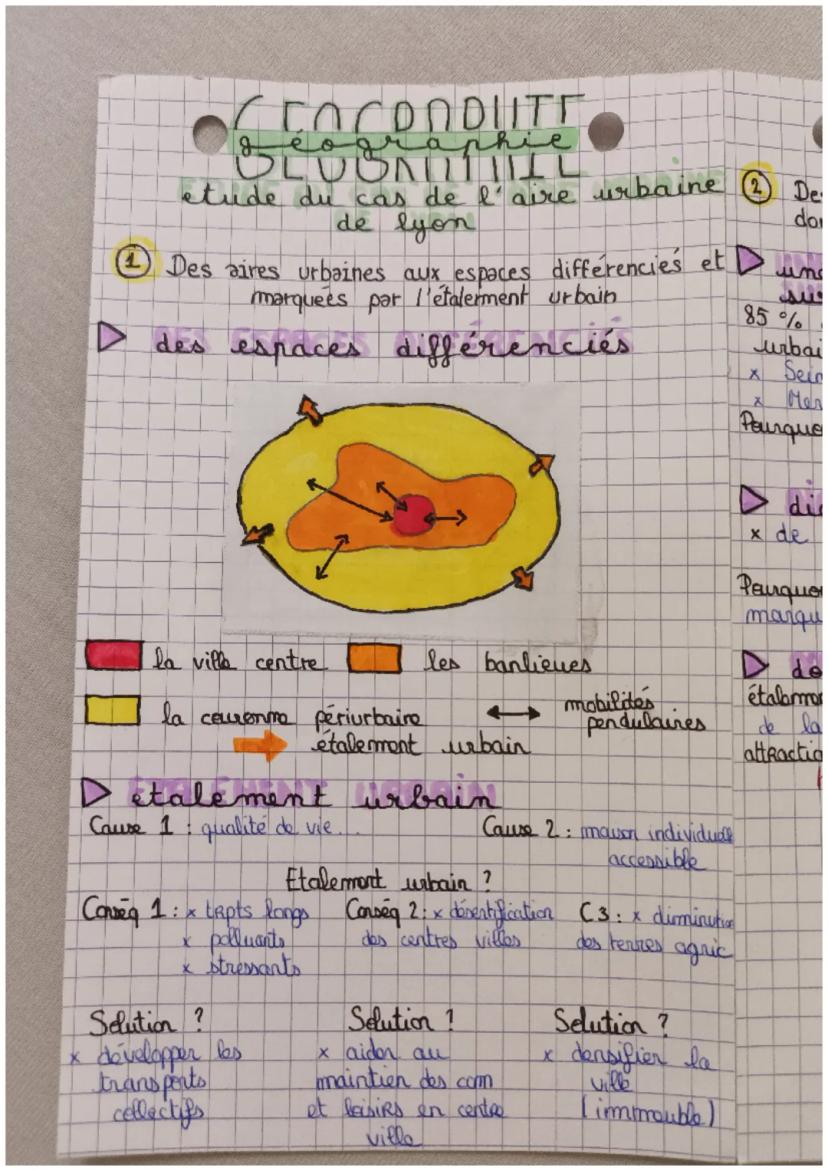 GEOGRAPHIE
géographie
étude du cas de l'aire urbaine
de lyon
1 Des aires urbaines aux espaces différenciés et
marquées par l'étalement urbain
des espaces différenciés
la ville centre
les banlieues
la couronne périurbaine
mobilités
pendulaires
étalement urbain
étalement urbain
Cause 1 : qualité de vie...
Cause 2 : maison individuelle
accessible
Etalement urbain ?
Conséq 1 : x trpts longs
x polluants
x stressants
Conséq 2 : x désertification
des centres villes
C3 : x diminution
des terres agric
Solution ?
x développer les
transports
collectifs
Solution ?
x aider au
maintien des com
et loisirs en centre
ville
Solution ?
x densifier la
ville
(immmeuble)
2 De
don
une
sur
85 %
urbai
x Sein
x Mer
Pourquo
dis
x de
Pourquo
marqu
de
étaleme
de la
attractio